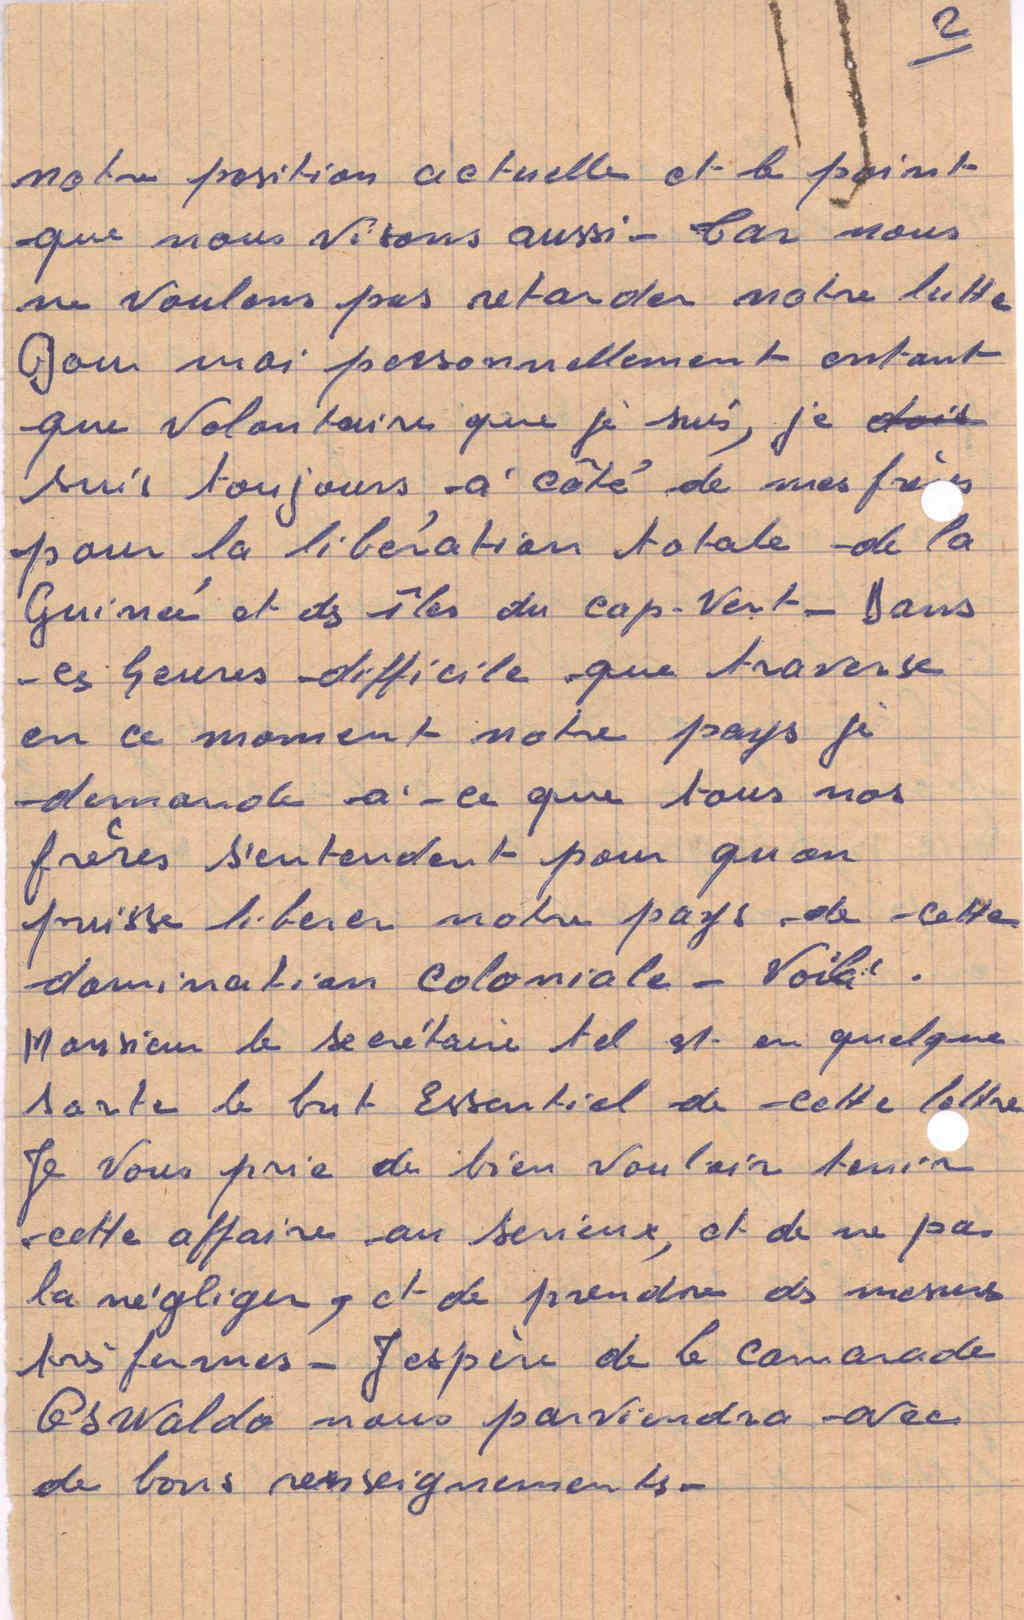 2
notre position actuelle et le point
que nous visons aussi - Car nous
ne voulons pas retarder notre lutte
Pour moi personnellement entant
que volontaire que je suis, je dois
suis toujours à côté de mes frères
pour la libération totale de la
Guineé et ds îles du cap-Vert - Dans
ces heures difficile que traverse
en ce moment notre pays je
demande à ce que tous nos
frères s'entendent pour qu'on
puisse liberer notre pays de cette
domination coloniale - Voilà .
Monsieur le secrétaire tel est en quelque
sorte le but Essentiel de cette lettre
Je vous prie de bien vouloir tenir
cette affaire au serieux, et de ne pas
la négliger, et de prendre ds mesures
très fermes - J'espère de le camarade
Oswaldo nous parviendra avec
de bons renseignements -